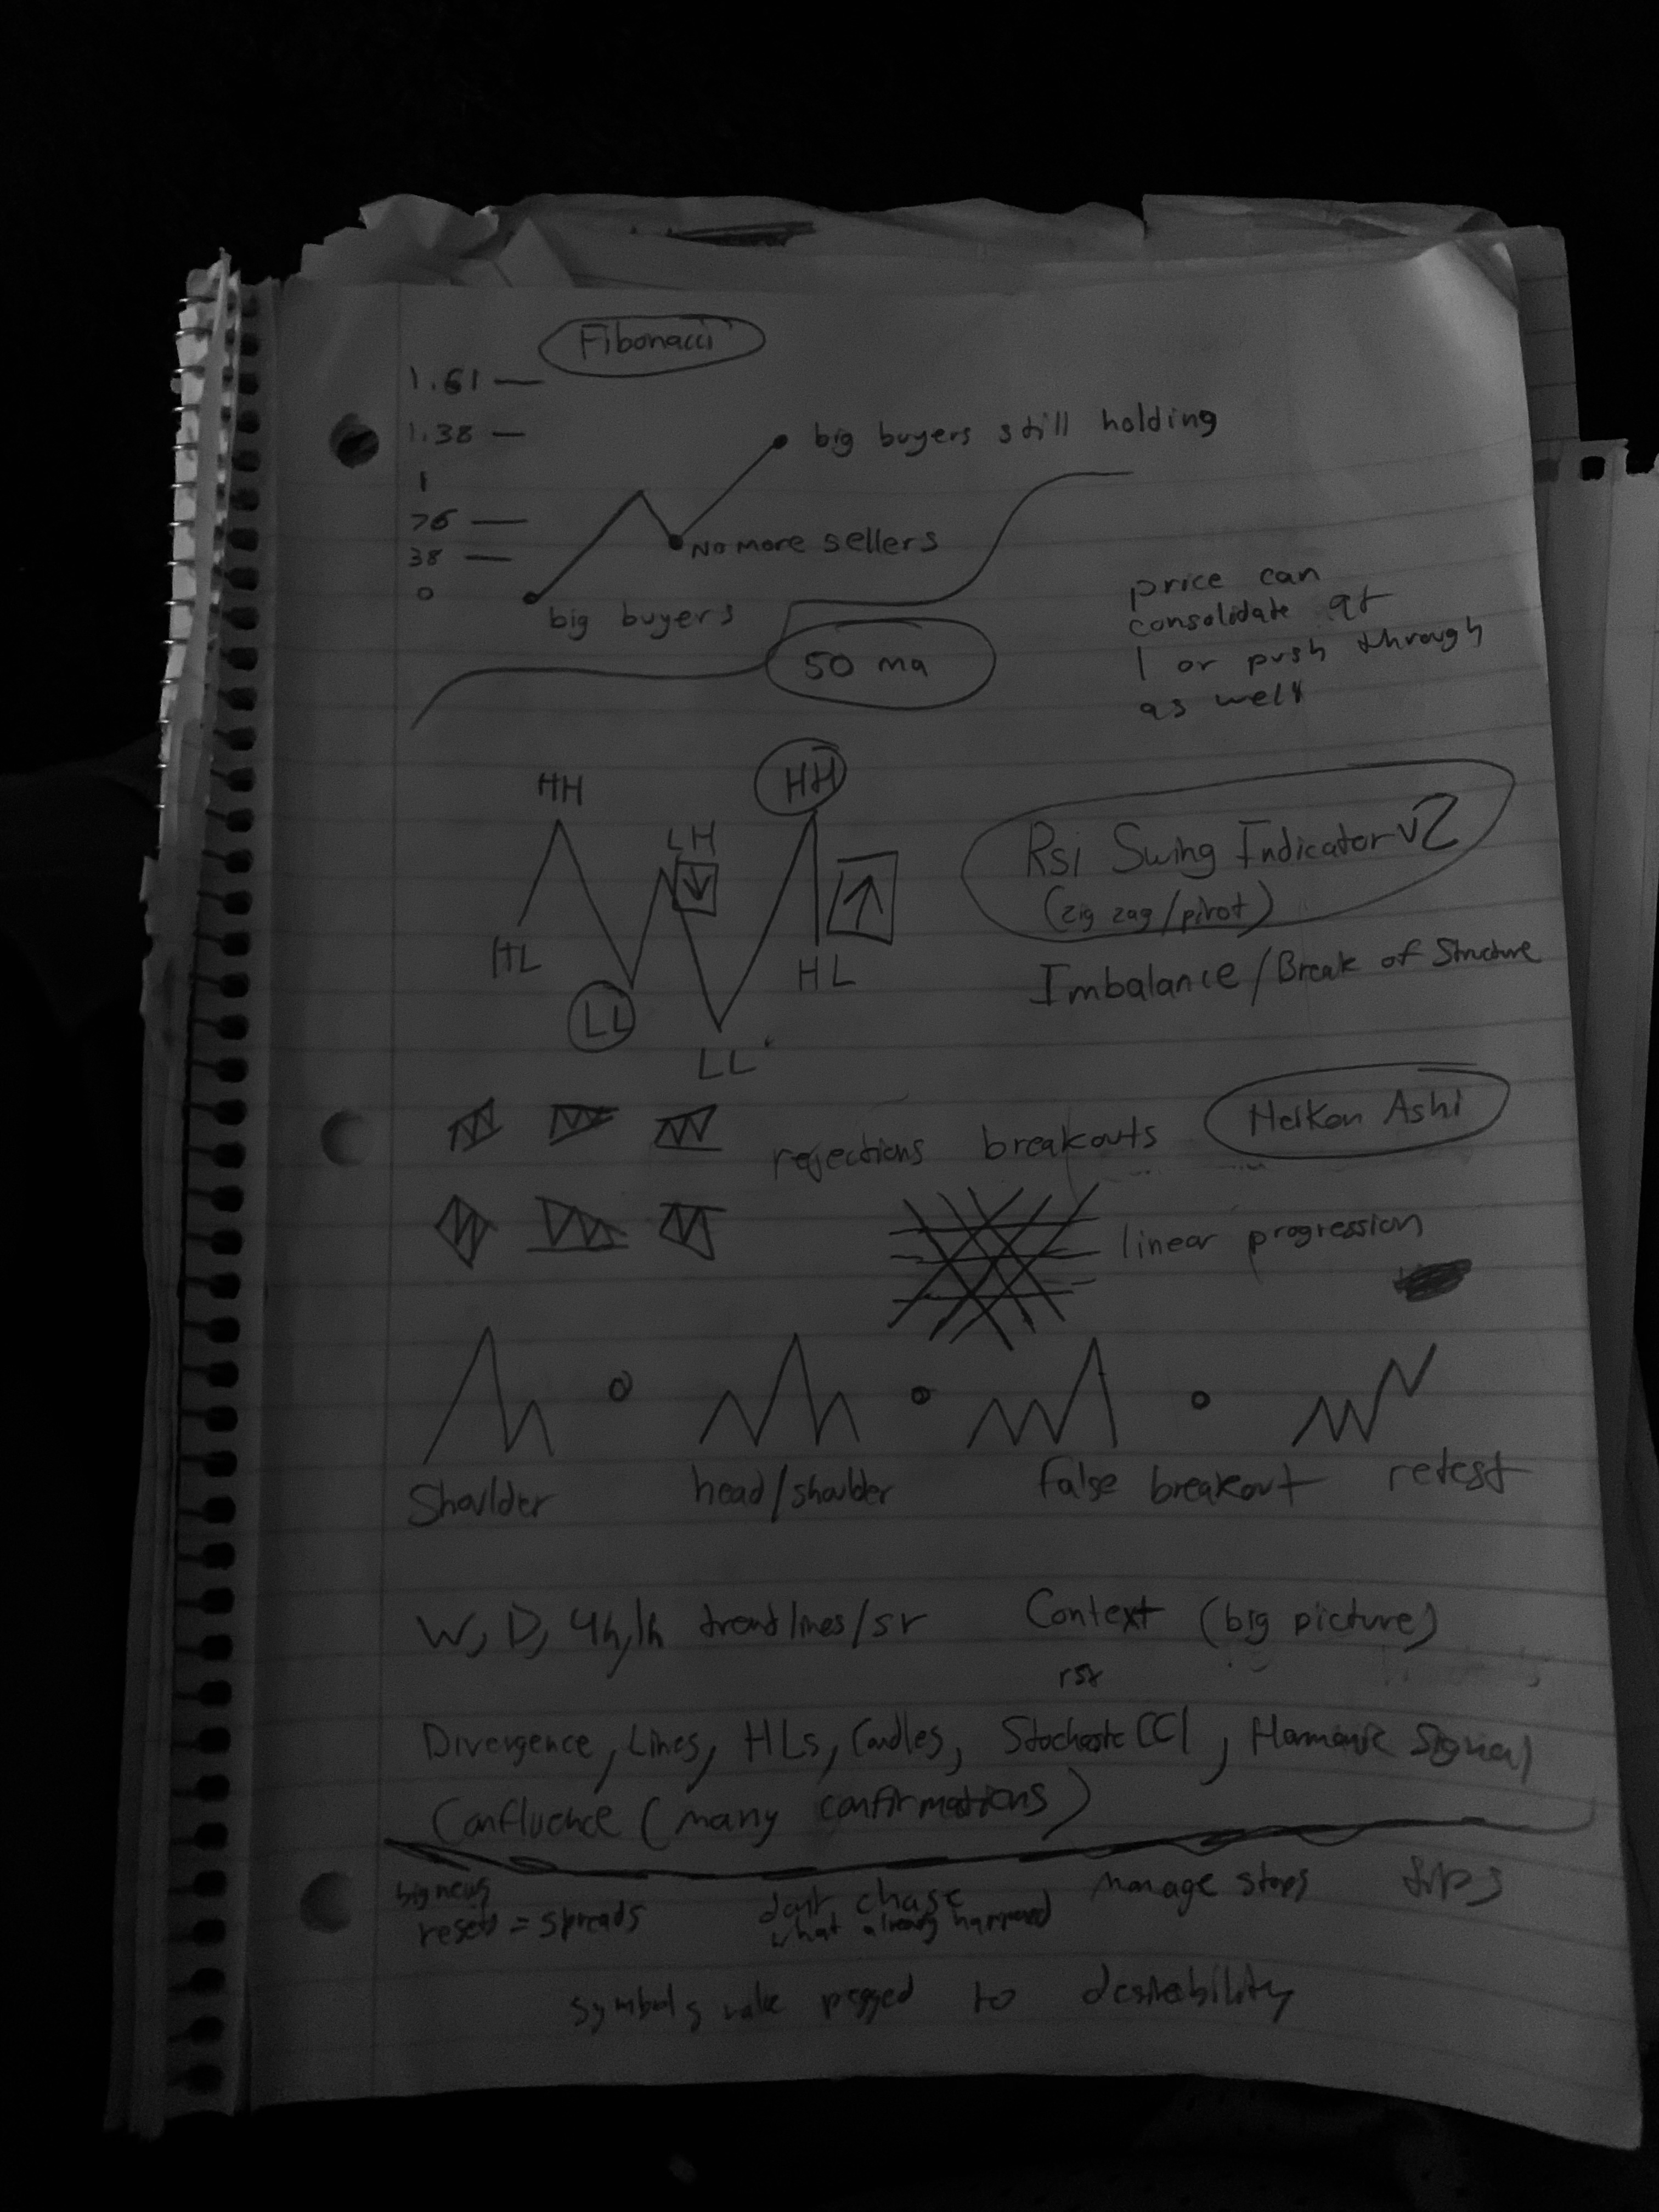 Fibonacci
1.61 —
1.38 —
big buyers still holding
1
76 —
No more sellers
38 —
0
big buyers
50 ma
price can
consolidate at
1 or push through
as well
HH
HH
LH
HL
HL
LL
LL
Rsi Swing Indicator v2
(zig zag/pivot)
Imbalance/Break of Structure
rejections breakouts
Heikon Ashi
linear progression
Shoulder
head/shoulder
false breakout
retest
W, D, 4h, 1h trendlines/sr
Context (big picture)
Divergence, Lines, HLs, Candles, Stochastic CCI, Harmonic Signal
Confluence (many confirmations)
big news
resets = spreads
dont chase
what already happened
manage stops
symbols value pegged to